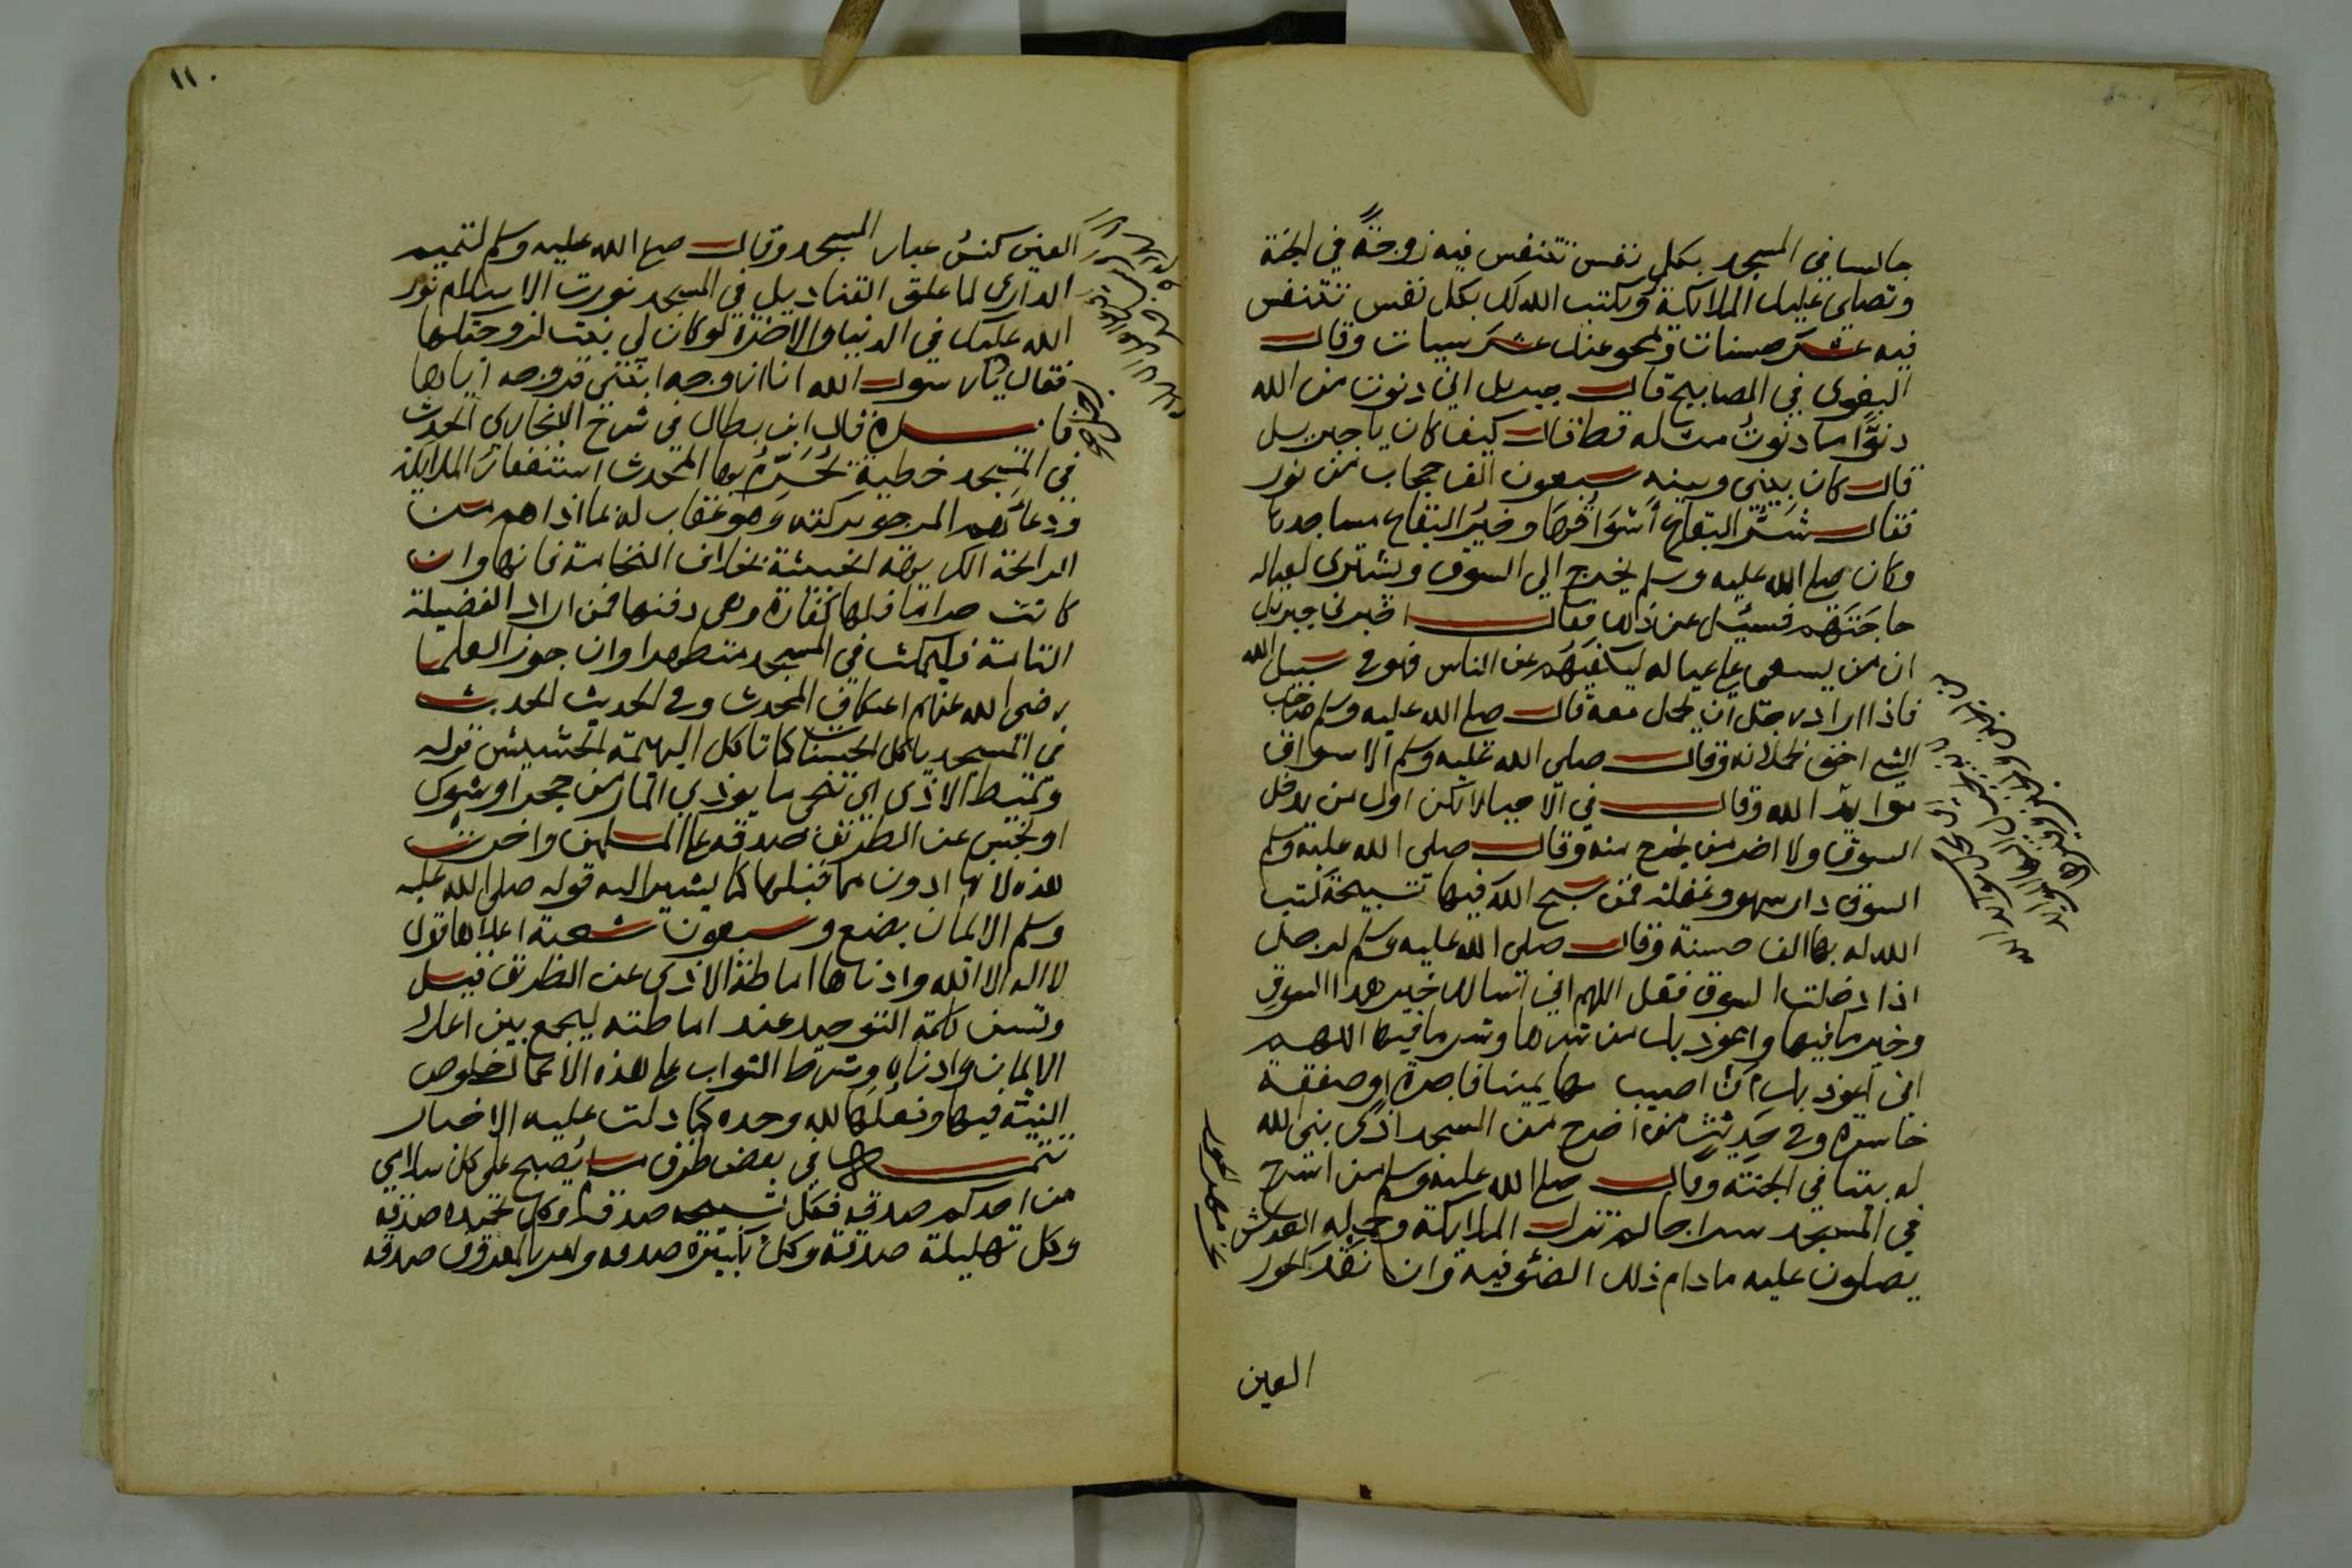 جالسا في المسجد بكل نفس تتنفس فيه زوجة في الجنة
وتصلي عليك الملائكة ويكتب الله لك بكل نفس تتنفس
فيه عشر حسنات ويمحو عنك عشر سيات وقال
البغوي في المصابيح قال جبريل اني دنوت من الله
دنوا ما دنوت مثله قط قال كيف كان يا جبريل
قال كان بيني وبينه سبعون الف حجاب من نور
فقال شر البقاع أسواقها وخير البقاع مساجدها
وكان صلى الله عليه وسلم يخرج الي السوق ويشتري لعياله
حاجتهم فسئل عن ذلك فقال اخبرني جبريل
ان من يسعى على عياله ليكفيهم عن الناس فهو في سبيل الله
فاذا اراد رجل ان يحمل معه قال صلى الله عليه وسلم صاحب
الشي احق بحملانه وقال صلى الله عليه وسلم الاسواق
موايد الله وقال في الاحيا لا تكن اول من يدخل
السوق ولا اخر من يخرج منه وقال صلى الله عليه وسلم
السوق دار سهو وغفلة فمن سبح الله فيها تسبيحة كتب
الله له بها الف حسنة وقال صلى الله عليه وسلم لرجل
اذا دخلت السوق فقل اللهم اني اسالك خير هذا السوق
وخير ما فيها واعوذ بك من شرها وشر ما فيها اللهم
اني اعوذ بك ان اصيب بها يمينا فاجرة او صفقة
خاسرة وفي حديث من اخرج من المسجد اذى بنى الله
له بيتا في الجنة وقال صلى الله عليه وسلم من اسرج
في المسجد سراجا لم تزل الملائكة وحملة العرش
يصلون عليه ما دام ذلك الضوء فيه وان نقد الحور
العين
١١٠
العين كنس غبار المسجد وقال صلى الله عليه وسلم لتميم
الداري لما علق القناديل في المسجد نورت الاسلام نور
الله عليك في الدنيا والاخرة لو كان لي بنت لزوجتكها
فقال يا رسول الله انا ازوجه ابنتي فزوجه اياها
قال ابن بطال في شرح البخاري الحدث
في المسجد خطية يحرم بها المحدث استغفار الملائكة
ودعائهم المرجو بركته وهو عقاب له بما اذاهم من
الرائحة الكريهة الخبيثة بخلاف النخامة فانها وان
كانت حراما فلها كفارة وهي دفنها فمن اراد الفضيلة
التامة فليمكث في المسجد متطهرا وان جوز العلما
رضي الله عنهم اعتكاف المحدث وفي الحديث الحديث
في المسجد ياكل الحسنات كما تاكل البهيمة الحشيش قوله
وتميط الاذى اي تنحى ما يوذي المار من حجر او شوك
او نجس عن الطريق صدقة على المسلمين واخرت
هذه لانها ادون مما قبلها كما يشير اليه قوله صلى الله عليه
وسلم الايمان بضع وسبعون شعبة اعلاها قول
لا اله الا الله وادناها اماطة الاذى عن الطريق قيل
وتسن كلمة التوحيد عند اماطته ليجمع بين اعلا
الايمان وادناه وشرط الثواب على هذه الاعمال خلوص
النية فيها وفعلها لله وحده كما دلت عليه الاخبار
في بعض طرق مسلم يصبح على كل سلامي
من احدكم صدقة فكل تسبيحة صدقة وكل تحميدة صدقة
وكل تهليلة صدقة وكل تكبيرة صدقة وامر بالمعروف صدقة